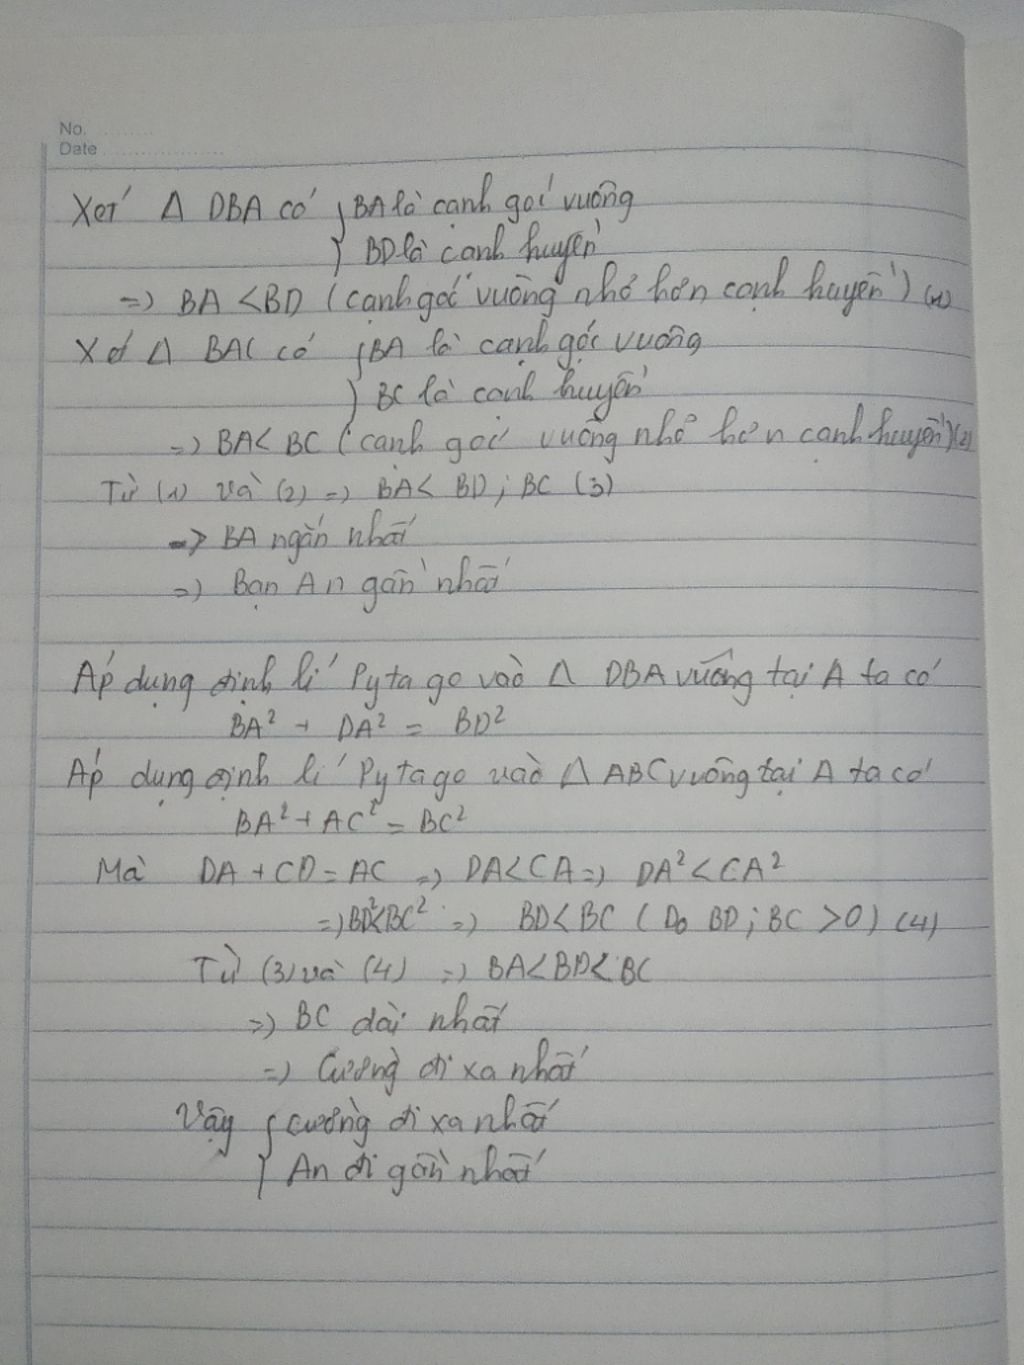 No.
Date
Xét Δ DBA có { BA là cạnh góc vuông
BD là cạnh huyền
=> BA < BD (cạnh góc vuông nhỏ hơn cạnh huyền) (1)
Xét Δ BAC có { BA là cạnh góc vuông
BC là cạnh huyền
=> BA < BC (cạnh góc vuông nhỏ hơn cạnh huyền) (2)
Từ (1) và (2) => BA < BD ; BC (3)
=> BA ngắn nhất
=> Bạn An gần nhất
Áp dụng định lí Pytago vào Δ DBA vuông tại A ta có
BA² + DA² = BD²
Áp dụng định lí Pytago vào Δ ABC vuông tại A ta có
BA² + AC² = BC²
Mà DA + CD = AC => DA < CA => DA² < CA²
=> BD² < BC² => BD < BC (Do BD ; BC > 0) (4)
Từ (3) và (4) => BA < BD < BC
=> BC dài nhất
=> Cường đi xa nhất
Vậy { Cường đi xa nhất
An đi gần nhất